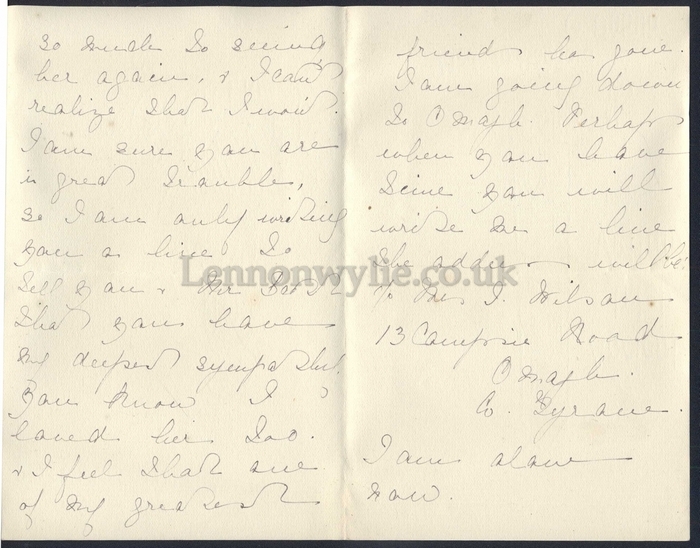 so much to seeing
her again, & I can't
realize that I won't.
I am sure you are
in great trouble,
so I am only writing
you a line to
tell you & Mr
that you have
my deepest sympathy.
You know I
loved her too.
& I feel that one
of my greatest
friends has gone.
I am going down
to Omagh. Perhaps
when you have
time you will
write me a line
the address will be
c/o Mrs J. Wilson
13 Campsie Road
Omagh.
Co. Tyrone.
I am alone
now.
Lennonwylie.co.uk